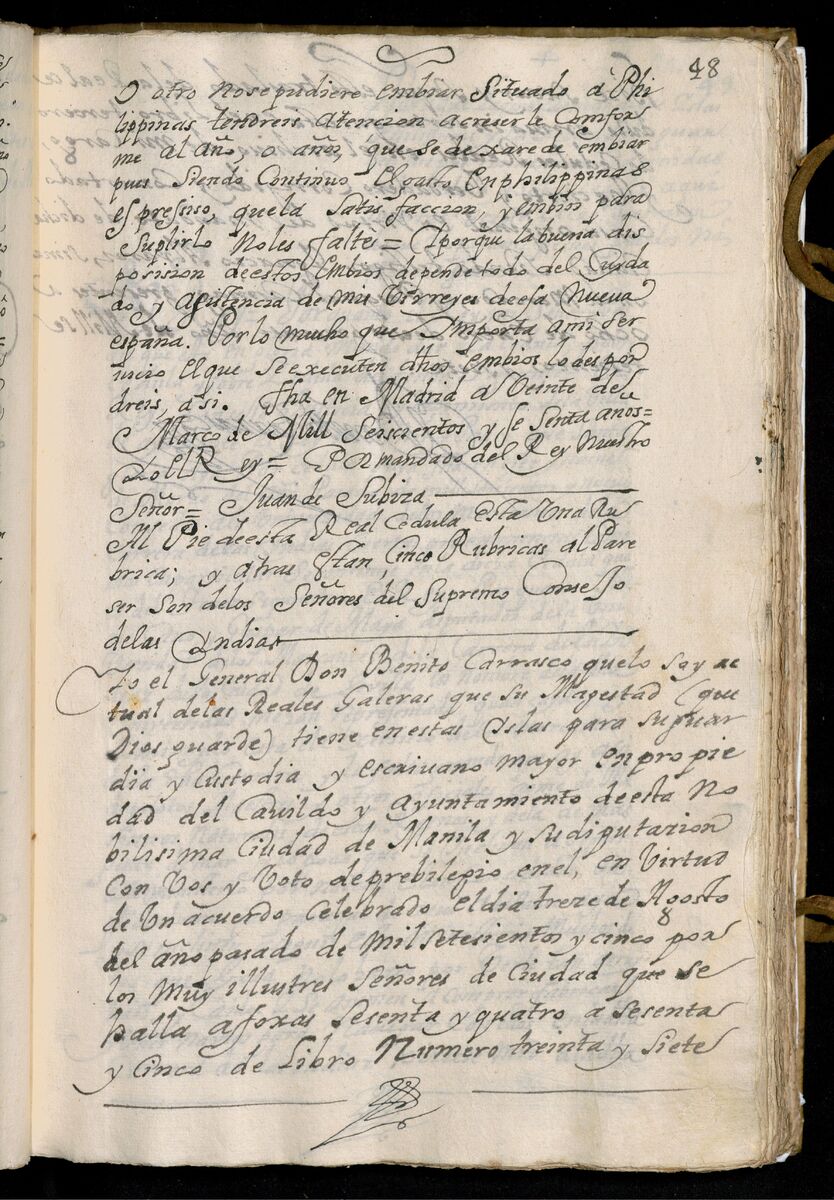 48
O otro no se pudiere embiar Situado à Phi
lippinas tendreis atencion acreserle Comfor
me al año, o años, que se dexare de embiar
pues Siendo Continuo El gasto Enphilippinas
es presiso, que la Satisfaccion, y embio para
Suplirlo Noles falte = Y porque la buena dis
posision deestos Embios depende todo del Cuyda
do y asistencia de mis Virreyes deesa Nueva
españa. Porlo mucho que Importa ami Ser
uicio El que se executen dhos embios lo despon
dreis, asi. fha en Madrid a Veinte de
Marco de Mill Seiscientos y se Senta años =
Yo El Rey = Por mandado del Rey Nuestro
Señor = Juan de Subiza
Al Pie deesta Real Cedula esta Una Ru
brica; y atras estan, Cinco Rubricas al Pare
ser son delos Señores del Supremo Consejo
delas Yndias
Yo el General Don Benito Carrasco quelo soy ac
tual delas Reales Galeras que su Magestad (que
Dios guarde) tiene enestas Yslas para su guar
dia y Custodia y escriuano mayor enpropie
dad del Cauildo y Ayuntamiento deesta No
bilisima Ciudad de Manila y sudiputazion
Con Vos y Voto deprebilegio enel, en Virtud
de Un acuerdo Celebrado el dia treze de Agosto
del año pasado de mil setesientos y cinco por
los muy illustres Señores de Ciudad que se
halla á foxas sesenta y quatro a sesenta
y Cinco de Libro Numero treinta y siete